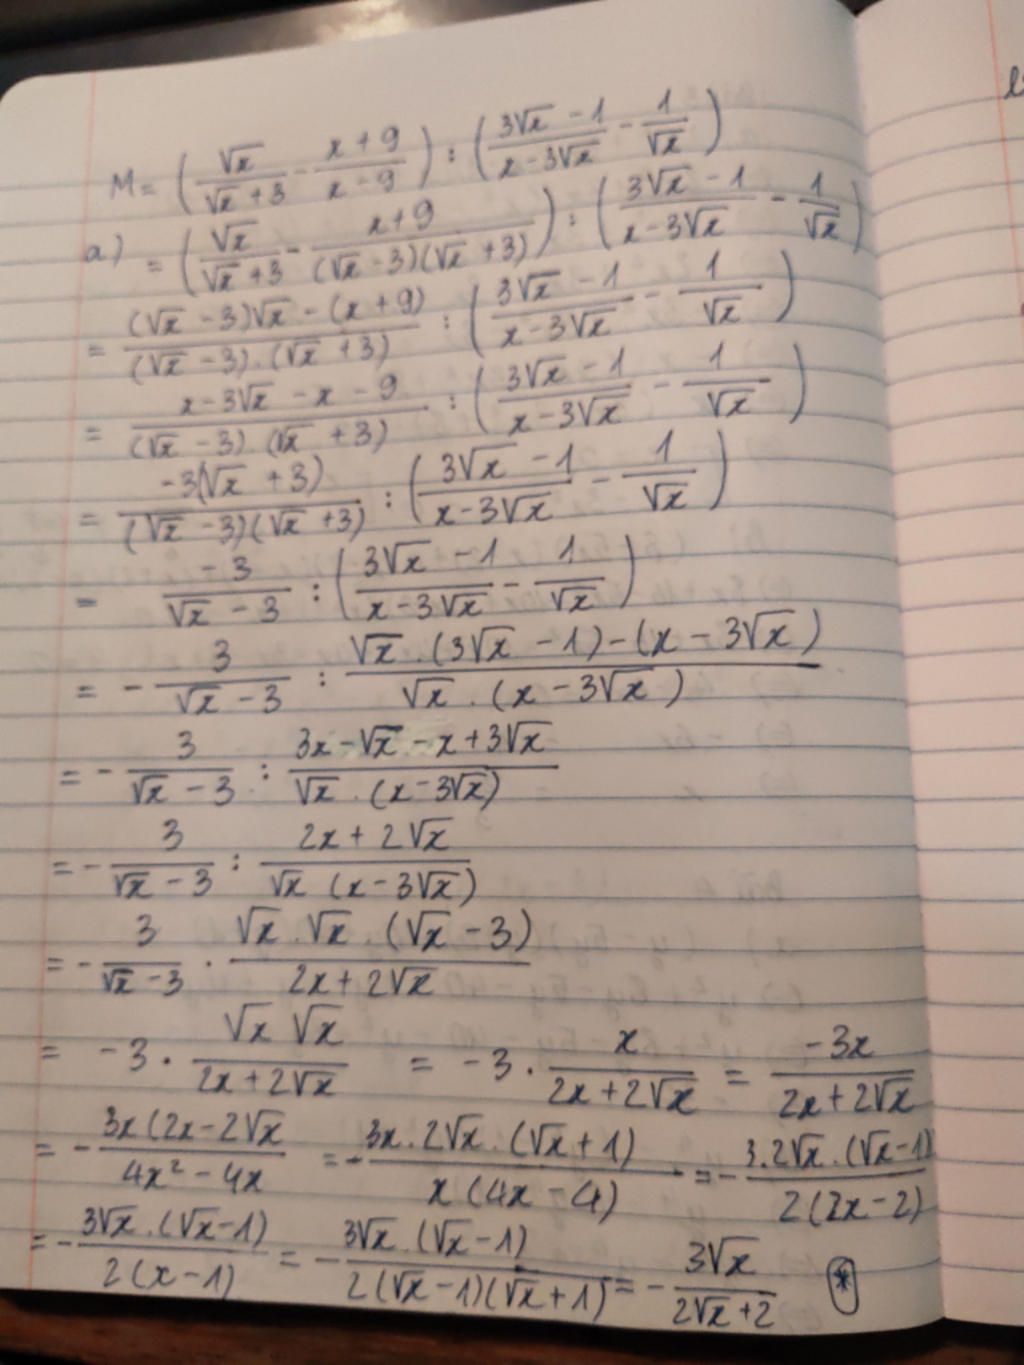 M = (√x/(√x + 3) - (x + 9)/(x - 9)) : ((3√x - 1)/(x - 3√x) - 1/√x)
a) = (√x/(√x + 3) - (x + 9)/((√x - 3)(√x + 3))) : ((3√x - 1)/(x - 3√x) - 1/√x)
= ((√x - 3)√x - (x + 9))/((√x - 3).(√x + 3)) : ((3√x - 1)/(x - 3√x) - 1/√x)
= (x - 3√x - x - 9)/((√x - 3).(√x + 3)) : ((3√x - 1)/(x - 3√x) - 1/√x)
= -3(√x + 3)/((√x - 3)(√x + 3)) : ((3√x - 1)/(x - 3√x) - 1/√x)
= -3/(√x - 3) : ((3√x - 1)/(x - 3√x) - 1/√x)
= - 3/(√x - 3) : (√x.(3√x - 1) - (x - 3√x))/(√x.(x - 3√x))
= - 3/(√x - 3) : (3x - √x - x + 3√x)/(√x.(x - 3√x))
= - 3/(√x - 3) : (2x + 2√x)/(√x (x - 3√x))
= - 3/(√x - 3) . (√x.√x.(√x - 3))/(2x + 2√x)
= -3 . (√x √x)/(2x + 2√x) = -3 . x/(2x + 2√x) = -3x/(2x + 2√x)
= - 3x(2x - 2√x/(4x² - 4x) = - 3x.2√x.(√x + 1)/(x(4x - 4)) = - 3.2√x.(√x - 1)/(2(2x - 2))
= - 3√x.(√x - 1)/(2(x - 1)) = - 3√x.(√x - 1)/(2(√x - 1)(√x + 1)) = - 3√x/(2√x + 2) *